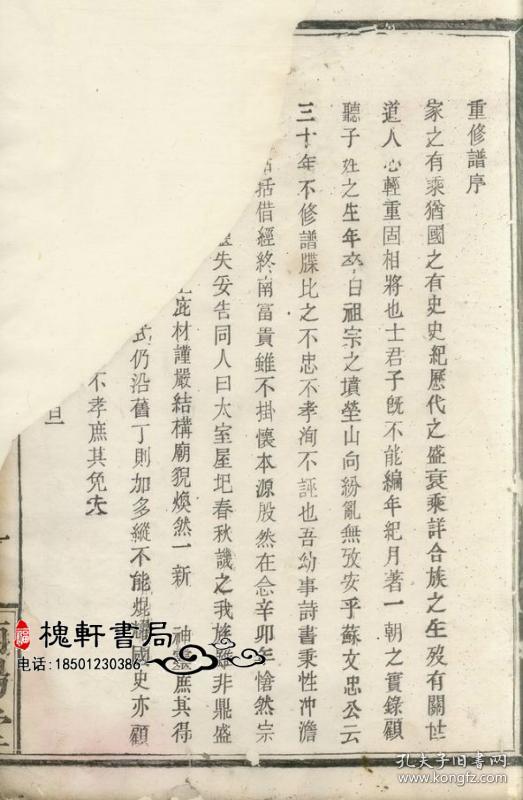 重修譜序
家之有乘猶國之有史史紀歷代之盛衰乘詳合族之生歿有關世
道人心輕重固相將也士君子旣不能編年紀月著一朝之實錄顧
聽子姓之生年卒日祖宗之墳塋山向紛亂無攷安乎蘇文忠公云
三十年不修譜牒比之不忠不孝洵不誣也吾幼事詩書秉性冲澹
括借經終南富貴雖不掛懷本源殷然在念辛卯年愴然宗
失妥告同人曰大室屋圯春秋譏之我族雖非鼎盛
庇材謹嚴結構廟貎煥然一新 神 庶其得
式仍沿舊丁則加多縱不能 國史亦顧
不孝庶其免夫
旦
槐軒書局
电话:18501230386
孔夫子旧书网
www.kongfz.com